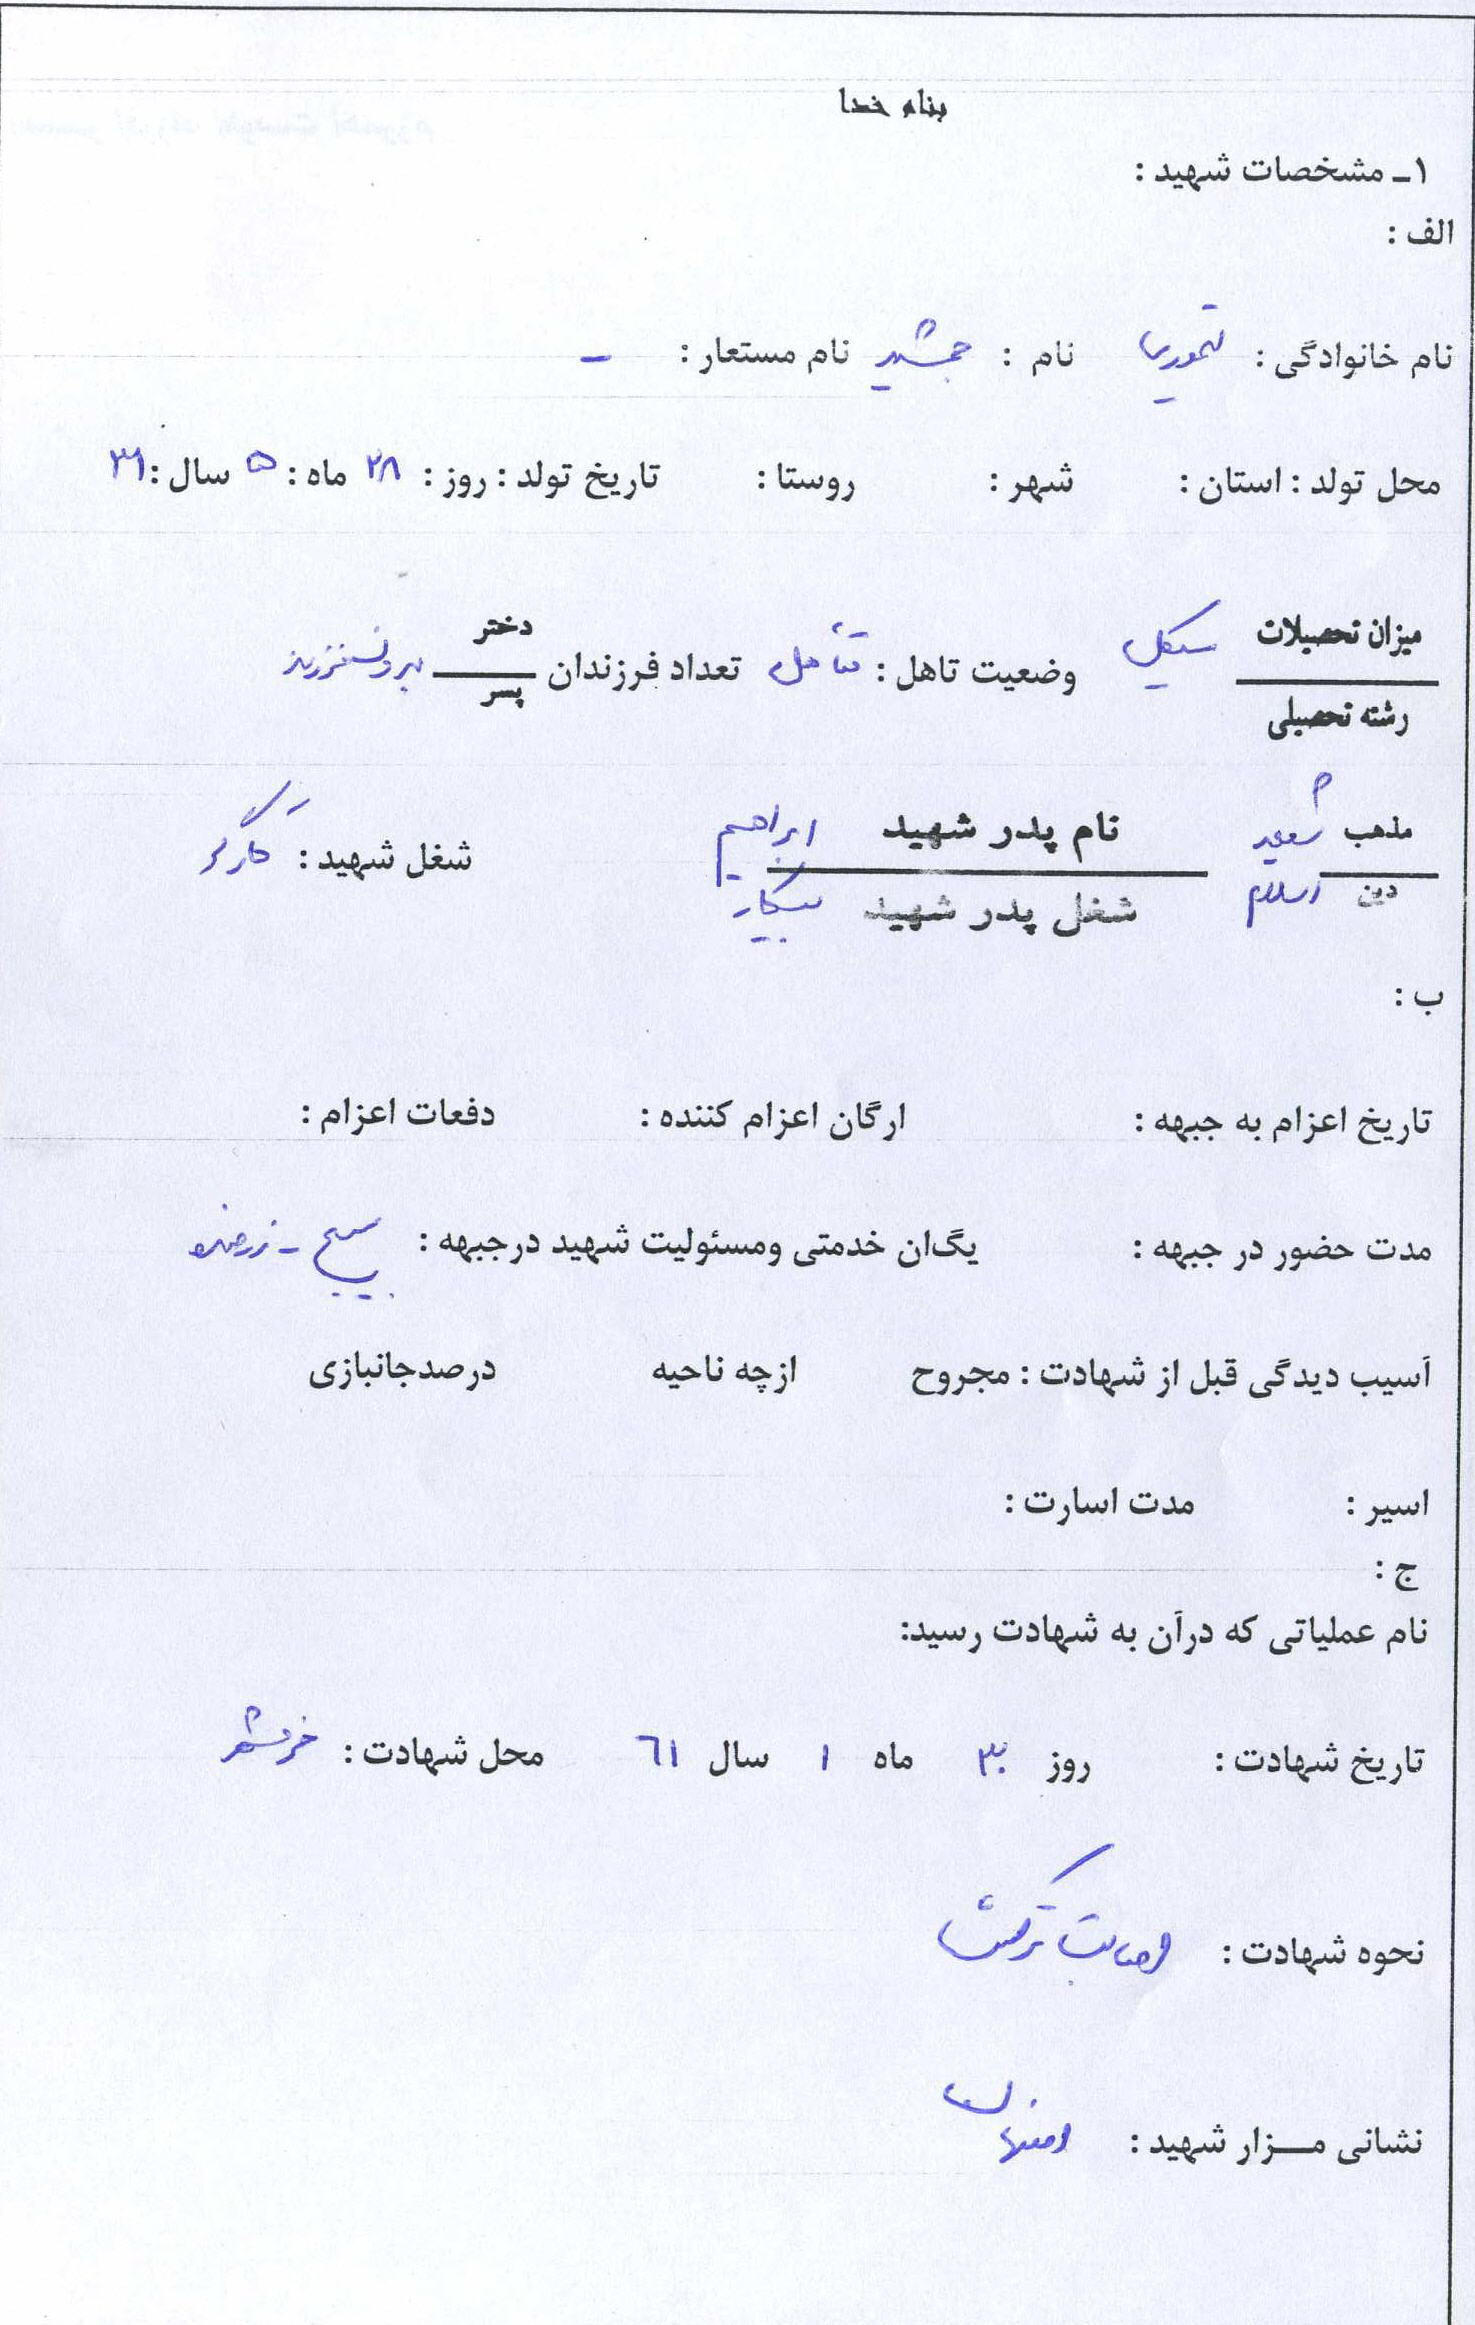 بنام خدا
۱ـ مشخصات شهید :
الف :
نام خانوادگی : تیموری نام : جمشید نام مستعار : -
محل تولد : استان : شهر : روستا : تاریخ تولد : روز : ۲۸ ماه : ۵ سال : ۳۱
میزان تحصیلات سیکل وضعیت تاهل : متأهل تعداد فرزندان دختر
رشته تحصیلی پسر
مذهب شیعه نام پدر شهید ابراهیم شغل شهید : کارگر
دین اسلام شغل پدر شهید بیکار
ب :
تاریخ اعزام به جبهه : ارگان اعزام کننده : دفعات اعزام :
مدت حضور در جبهه : یگان خدمتی ومسئولیت شهید درجبهه : بسیج - رزمنده
آسیب دیدگی قبل از شهادت : مجروح ازچه ناحیه درصدجانبازی
اسیر : مدت اسارت :
ج :
نام عملیاتی که درآن به شهادت رسید:
تاریخ شهادت : روز ۳۰ ماه ۱ سال ٦۱ محل شهادت : خرمشهر
نحوه شهادت : اصابت ترکش
نشانی مـــزار شهید : اصفهان